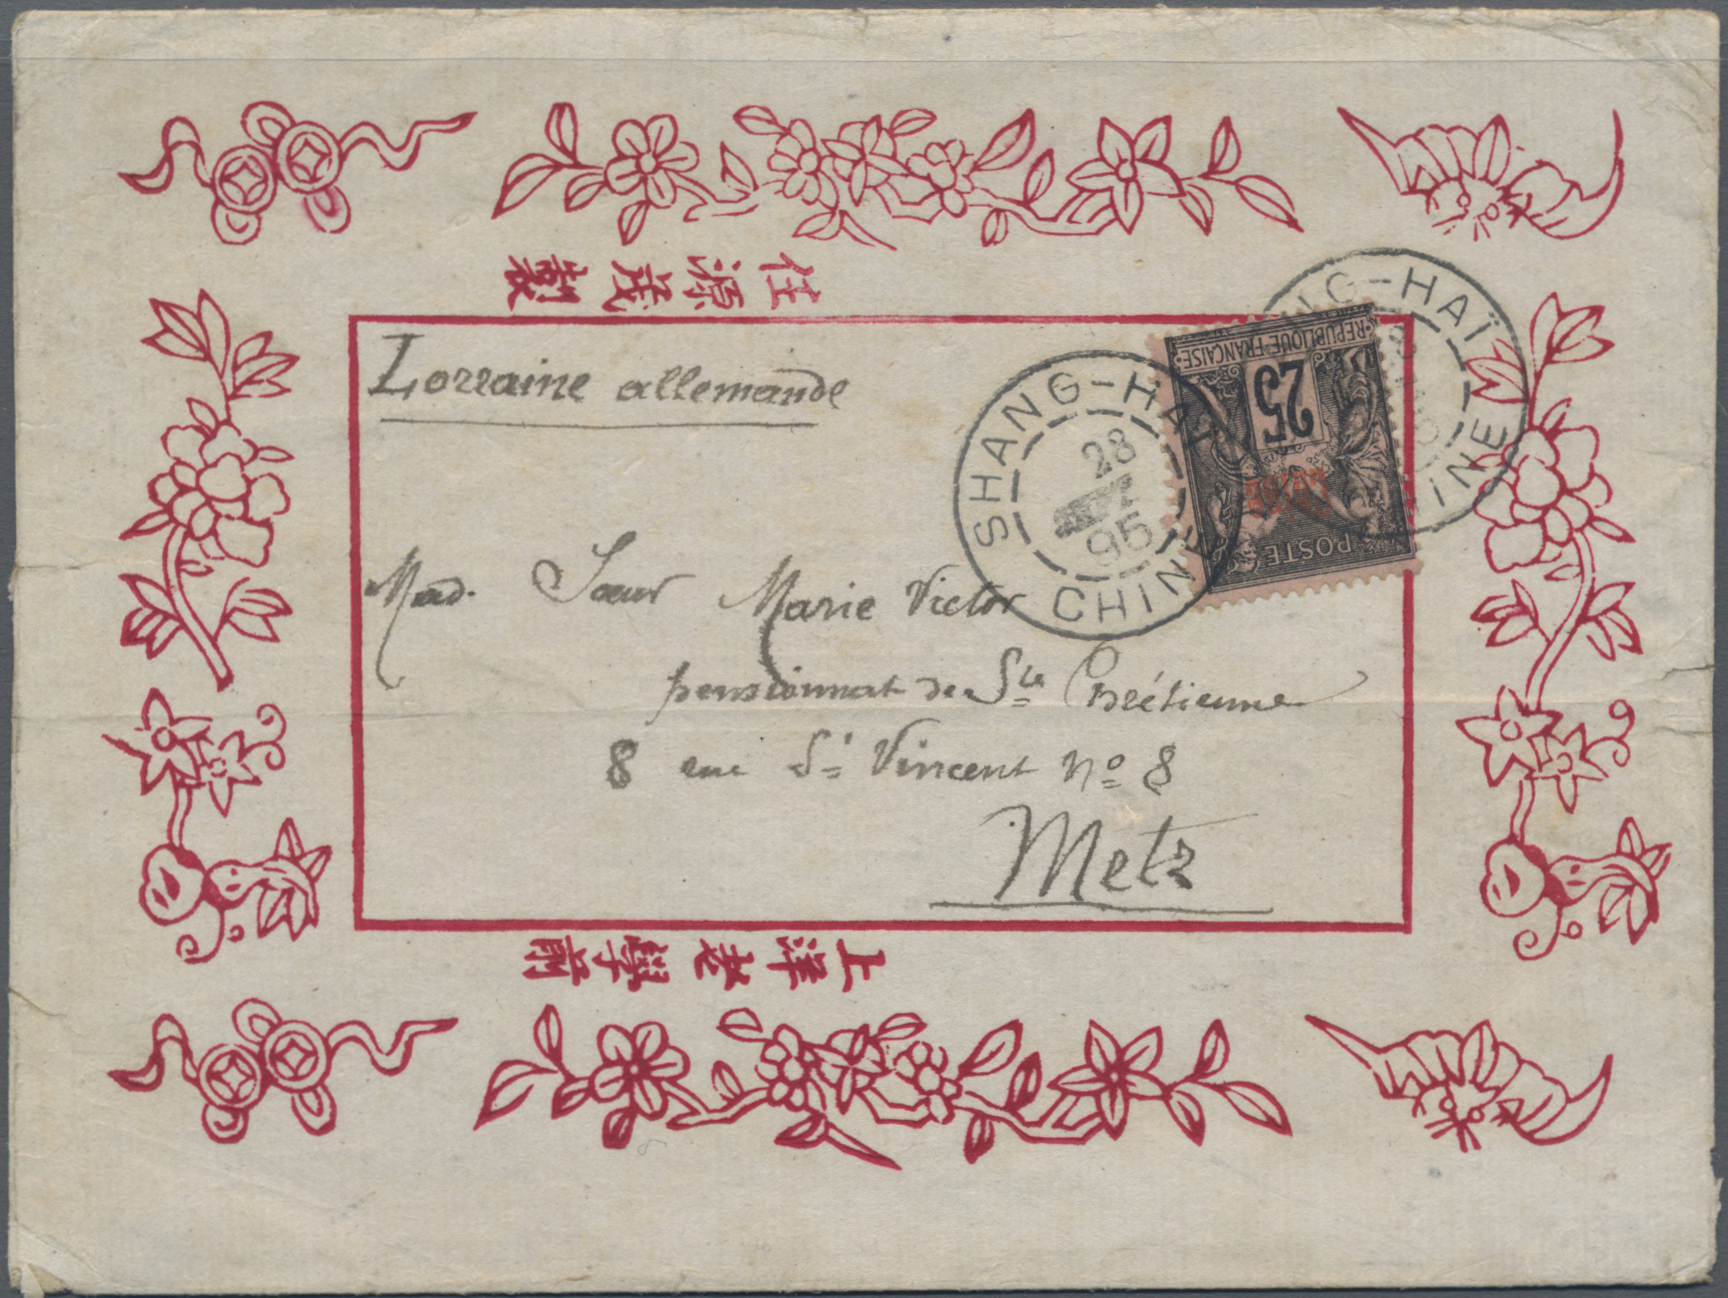 任源茂製
Lorraine allemande
Mad. Sœur Marie Victor
pensionnat de Ste Chrétienne
8 rue St Vincent No 8
Metz
上洋老學前
SHANG-HAI
28
95
CHINE
REPUBLIQUE FRANÇAISE
25
Chine
POSTE
NG-HAÏ
CHINE